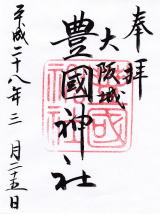 奉拝
大阪城
豊國神社
平成二十八年三月二十五日